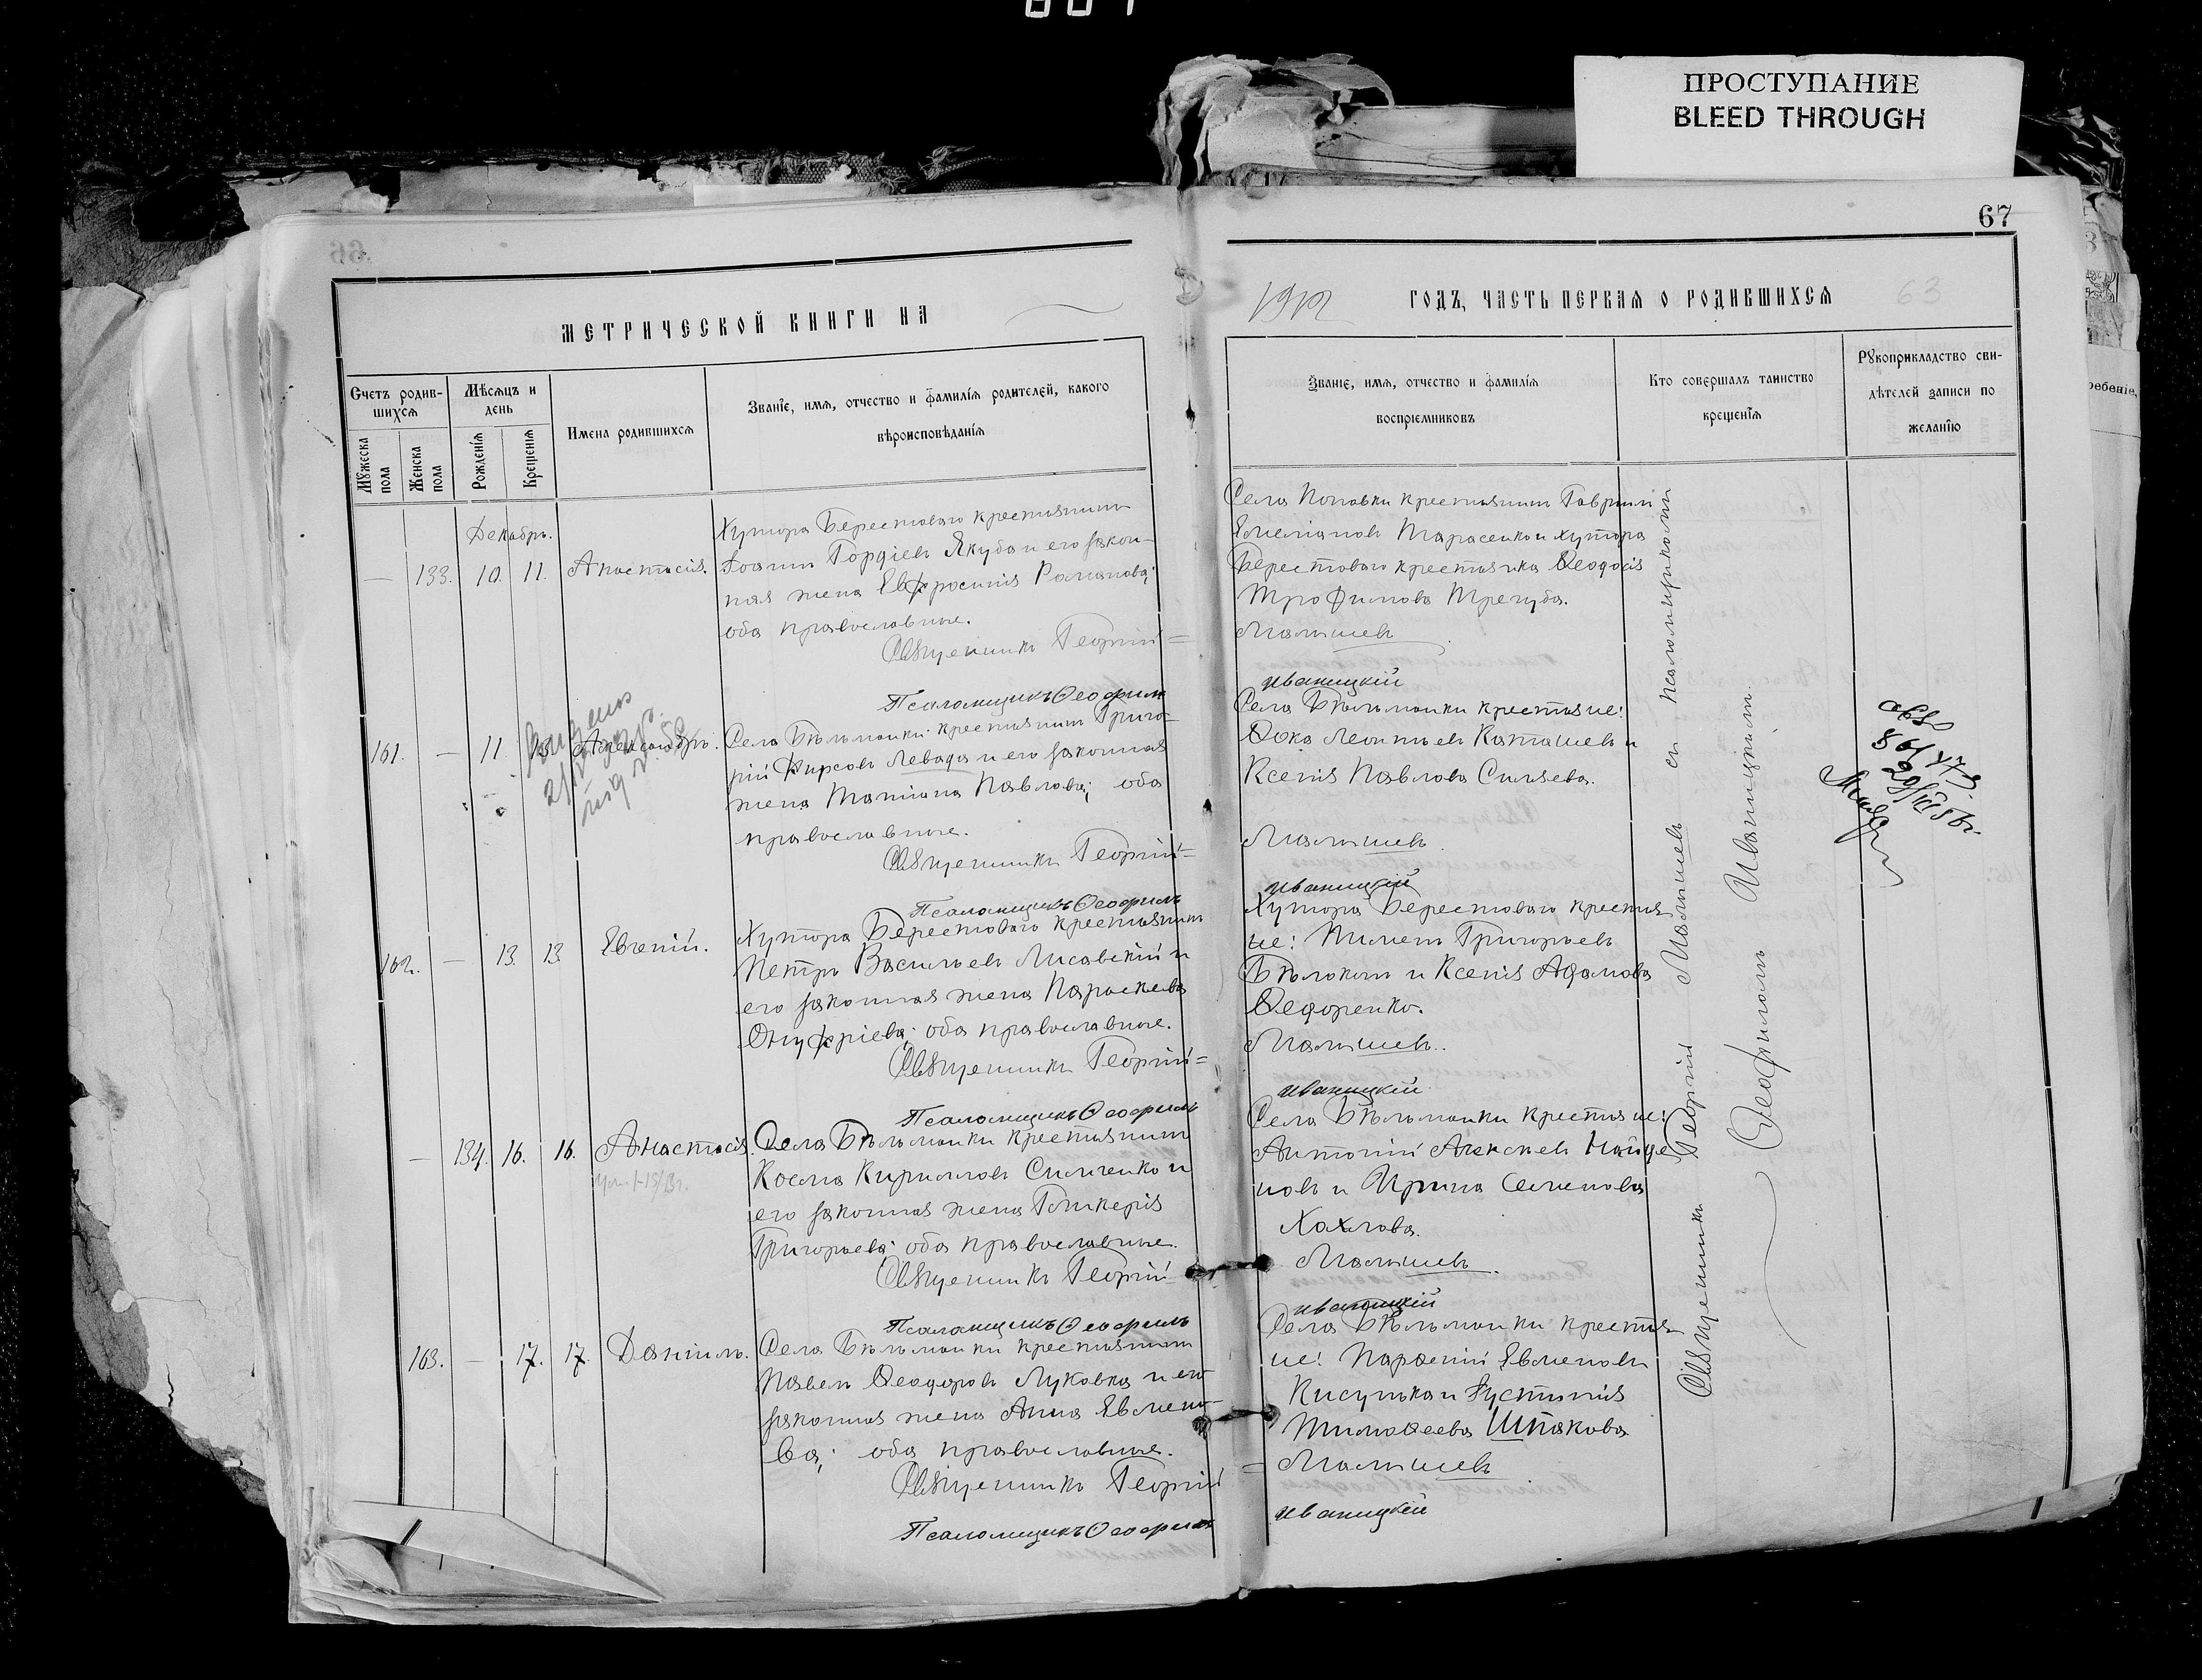 ПРОСТУПАНИЕ
BLEED THROUGH
67
МЕТРИЧЕСКОЙ КНИГИ НА
1912 ГОДЪ, ЧАСТЬ ПЕРВАЯ О РОДИВШИХСЯ
63
Счетъ родив-
шихся
Мужеска пола
Женска пола
Мѣсяцъ и
день
Рожденія
Крещенія
Имена родившихся
Званіе, имя, отчество и фамилія родителей, какого
вѣроисповѣданія
Званіе, имя, отчество и фамилія
воспріемниковъ
Кто совершалъ таинство
крещенія
Рукоприкладство сви-
дѣтелей записи по
желанію
Декабрь.
— 133. 10. 11. Анастасія.
Хутора Берестоваго крестьянинъ
Іоаннъ Гордіевъ Якуба и его закон-
ная жена Евфросинія Романова;
оба православные.
Священникъ Георгій =
Псаломщикъ Ѳеофилъ
Села Поповки крестьянинъ Гавріилъ
Емеліановъ Тарасенко и хутора
Берестоваго крестьянка Ѳеодосія
Трофимова Трегуба.
Малышевъ
Иваницкій
161. — 11. 13. Александръ.
Села Бѣльманки крестьянинъ Григо-
рій Фирсовъ Левада и его законная
жена Татіана Павлова; оба
православные.
Священникъ Георгій =
Псаломщикъ Ѳеофилъ
Села Бѣльманки крестьяне:
Ѳока Леонтьевъ Каташевъ и
Ксенія Павлова Силяева.
Малышевъ
Иваницкій
162. — 13. 13 Евгеній.
Хутора Берестоваго крестьянинъ
Петръ Васильевъ Лисавскій и
его законная жена Параскева
Онуфріева; оба православные.
Священникъ Георгій =
Псаломщикъ Ѳеофилъ
Хутора Берестоваго крестья
не: Пименъ Григорьевъ
Бѣлоконь и Ксенія Адамова
Ѳедоренко.
Малышевъ.
Иваницкій
— 134. 16. 16. Анастасія.
Села Бѣльманки крестьянинъ
Косма Кирилловъ Симченко и
его законная жена Гликерія
Григорьева; оба православные.
Священникъ Георгій
Псаломщикъ Ѳеофилъ
Села Бѣльманки крестьяне:
Антоній Алексѣевъ Найде
новъ и Ирина Семенова
Хохлова.
Малышевъ.
Иваницкій
163. — 17. 17. Даніилъ.
Села Бѣльманки крестьянинъ
Павелъ Ѳеодоровъ Луковка и его
законная жена Анна Евмено-
ва; оба православные.
Священникъ Георгій
Псаломщикъ Ѳеофилъ
Села Бѣльманки крестья
не: Парѳеній Евменовъ
Кисулька и Іустинія
Тимоѳеева Шпакова
= Малышевъ
Иваницкій
Священникъ Георгій Малышевъ съ псаломщикомъ
Ѳеофиломъ Иваницкимъ.